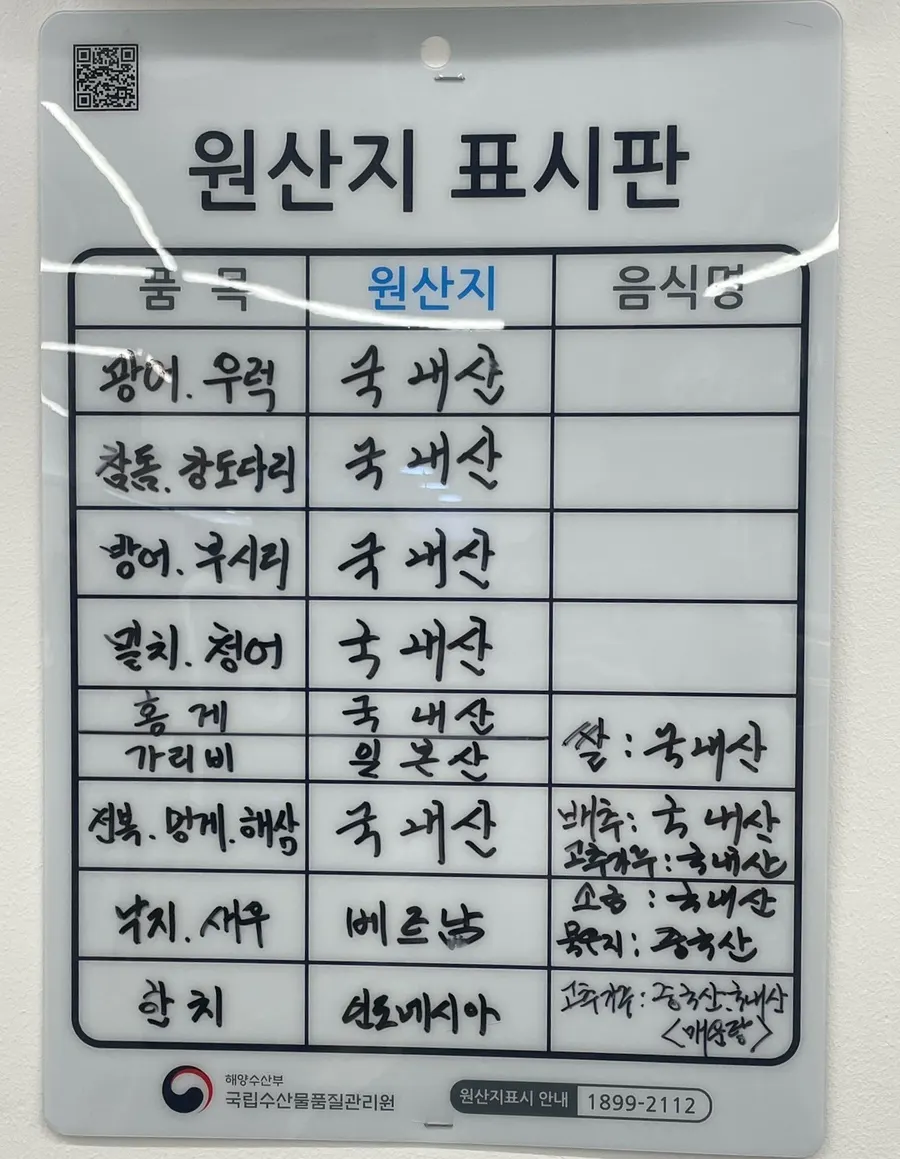 원산지 표시판
품 목 원산지 음식명
광어. 우럭 국내산
참돔. 강도다리 국내산
방어. 부시리 국내산
멸치. 청어 국내산
홍 게 국 내 산
가리비 일 본 산
쌀 : 국내산
전복. 멍게. 해삼 국내산
배추: 국 내산
고추가루 : 국내산
낙지. 새우 베트남
소금 : 국내산
묵은지 : 중국산
한 치 인도네시아
고추가루 : 중국산.국내산
<매운탕>
해양수산부
국립수산물품질관리원
원산지표시 안내 1899-2112